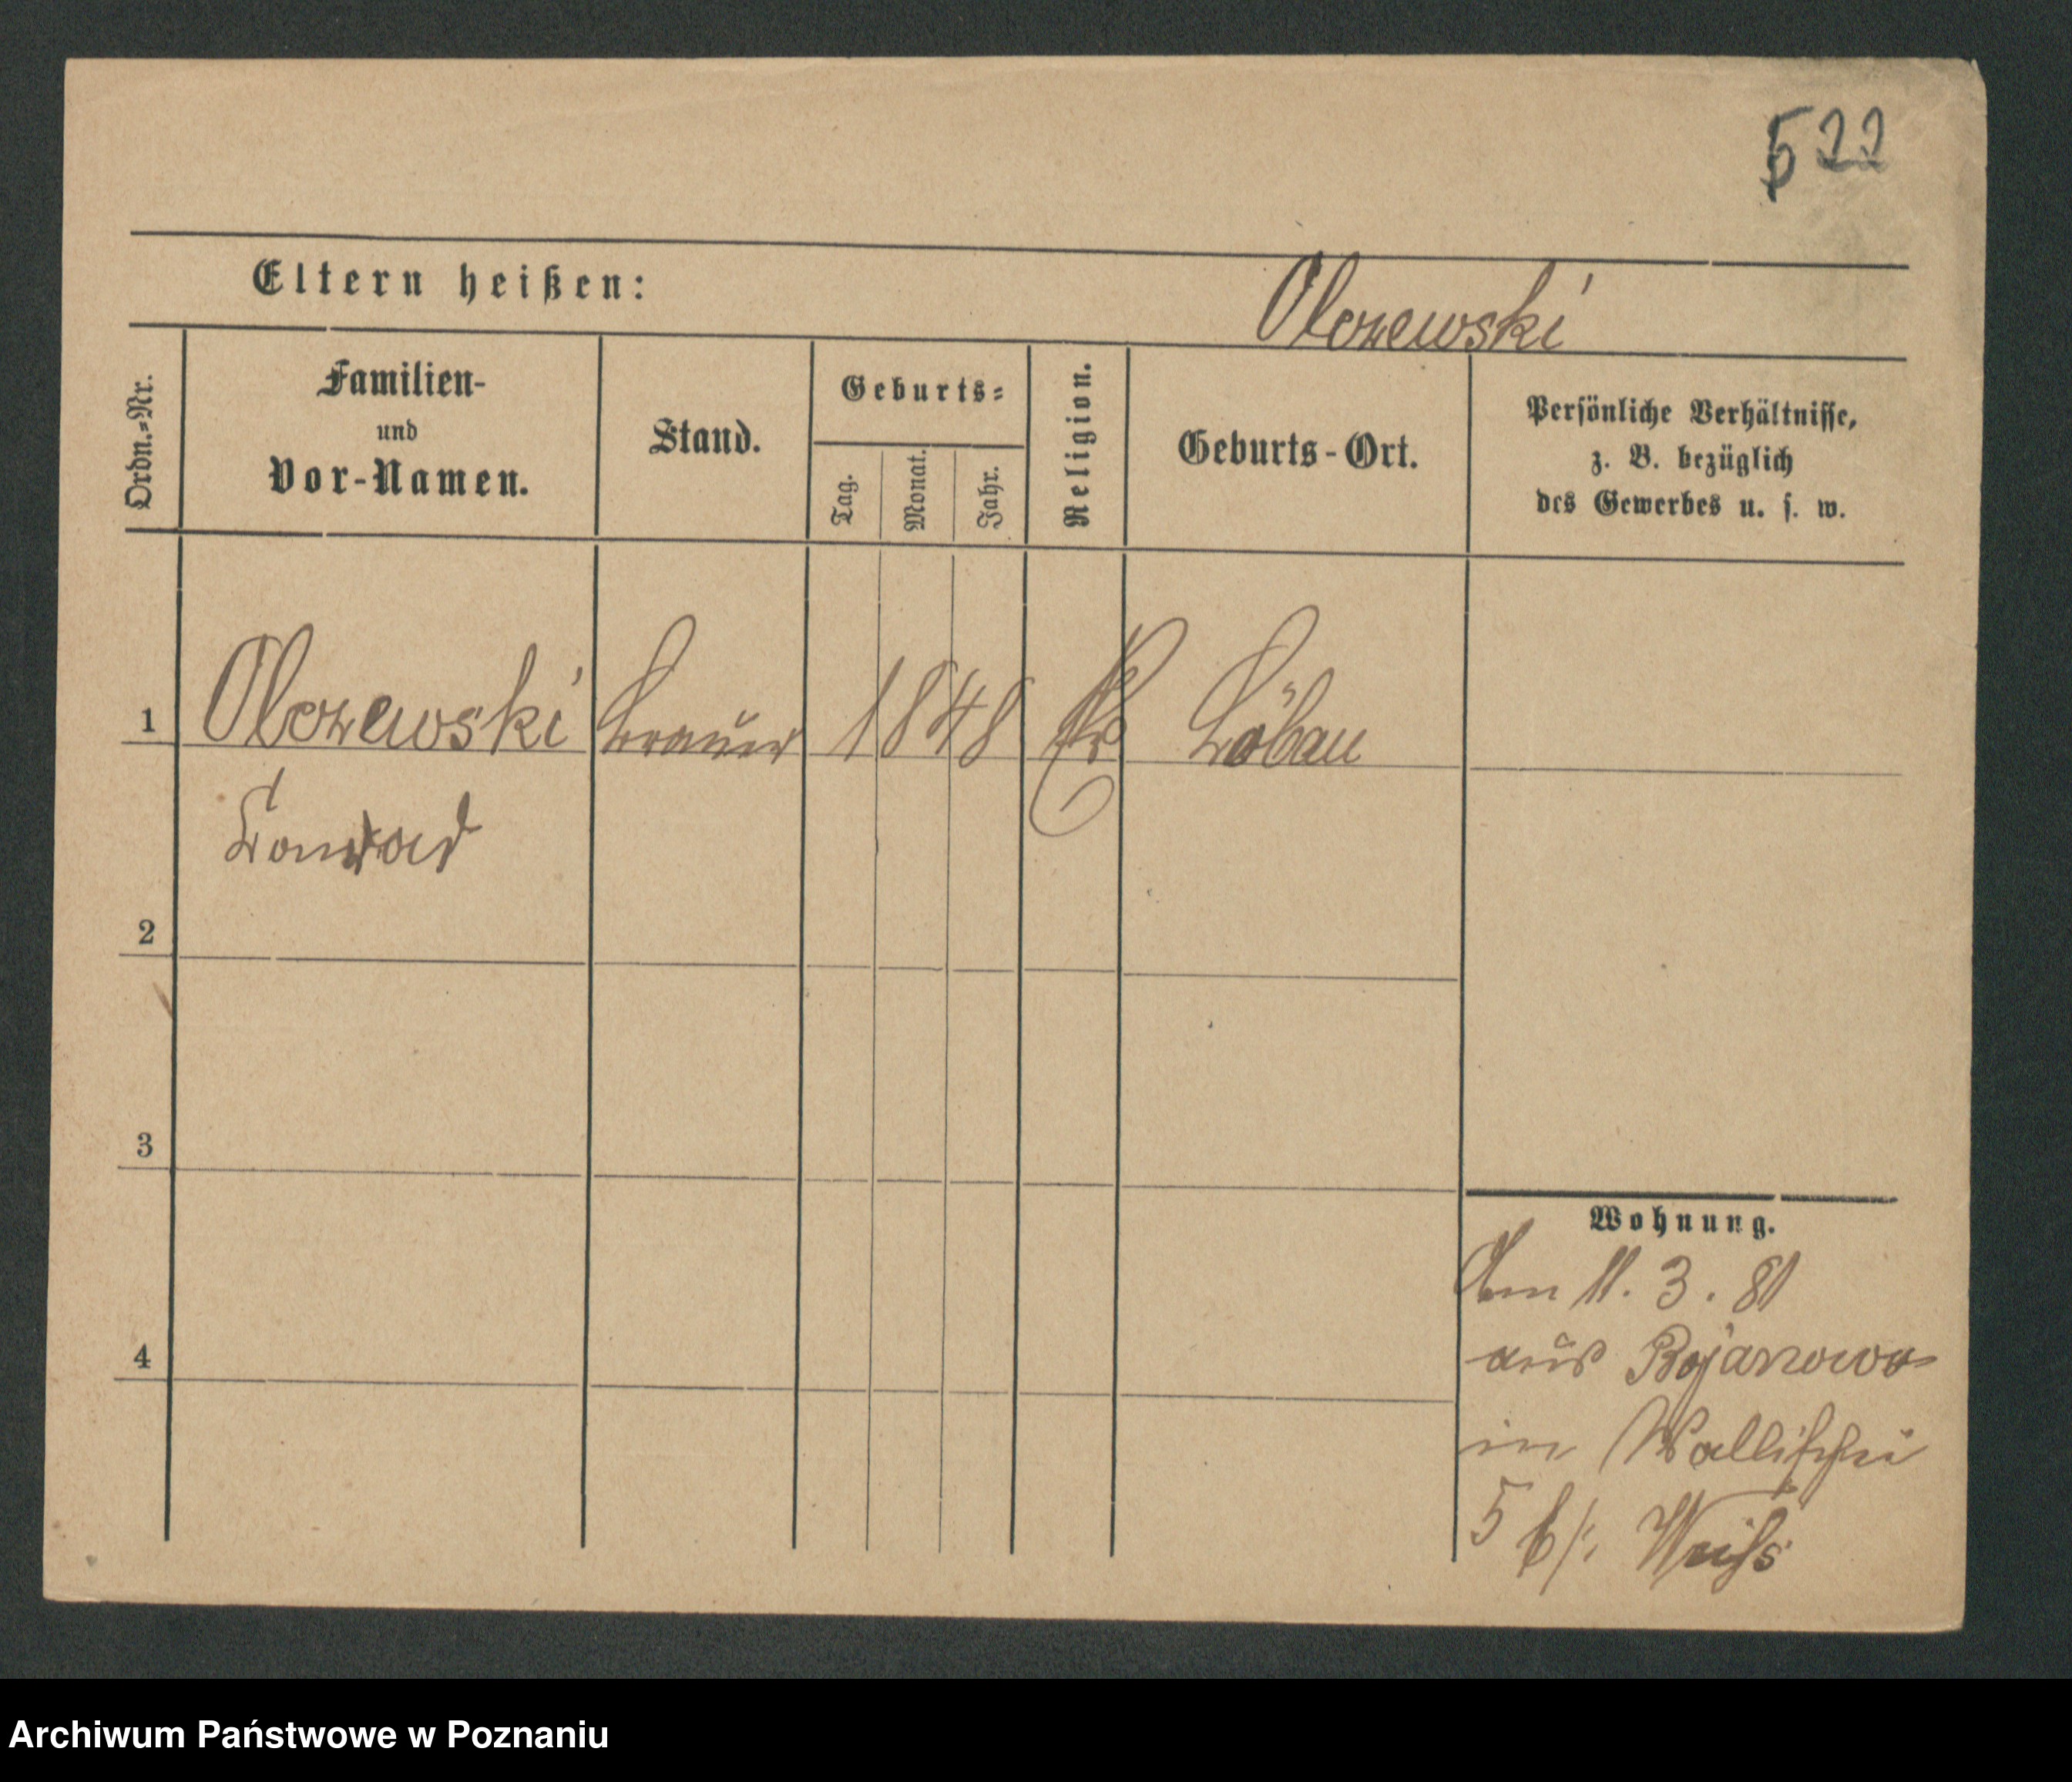 522
Eltern heißen:
Olszewski
Ordn.-Nr.
Familien-
und
Vor-Namen.
Stand.
Geburts-
Tag.
Monat.
Jahr.
Religion.
Geburts-Ort.
Persönliche Verhältnisse,
z. B. bezüglich
des Gewerbes u. s. w.
1 Olszewski Brauer 1848 Löbau
Conrad
2
3
4
Wohnung.
Am 11. 3. 81
aus Bojanowo
in Wallischei
5 b/: Weiss
Archiwum Państwowe w Poznaniu